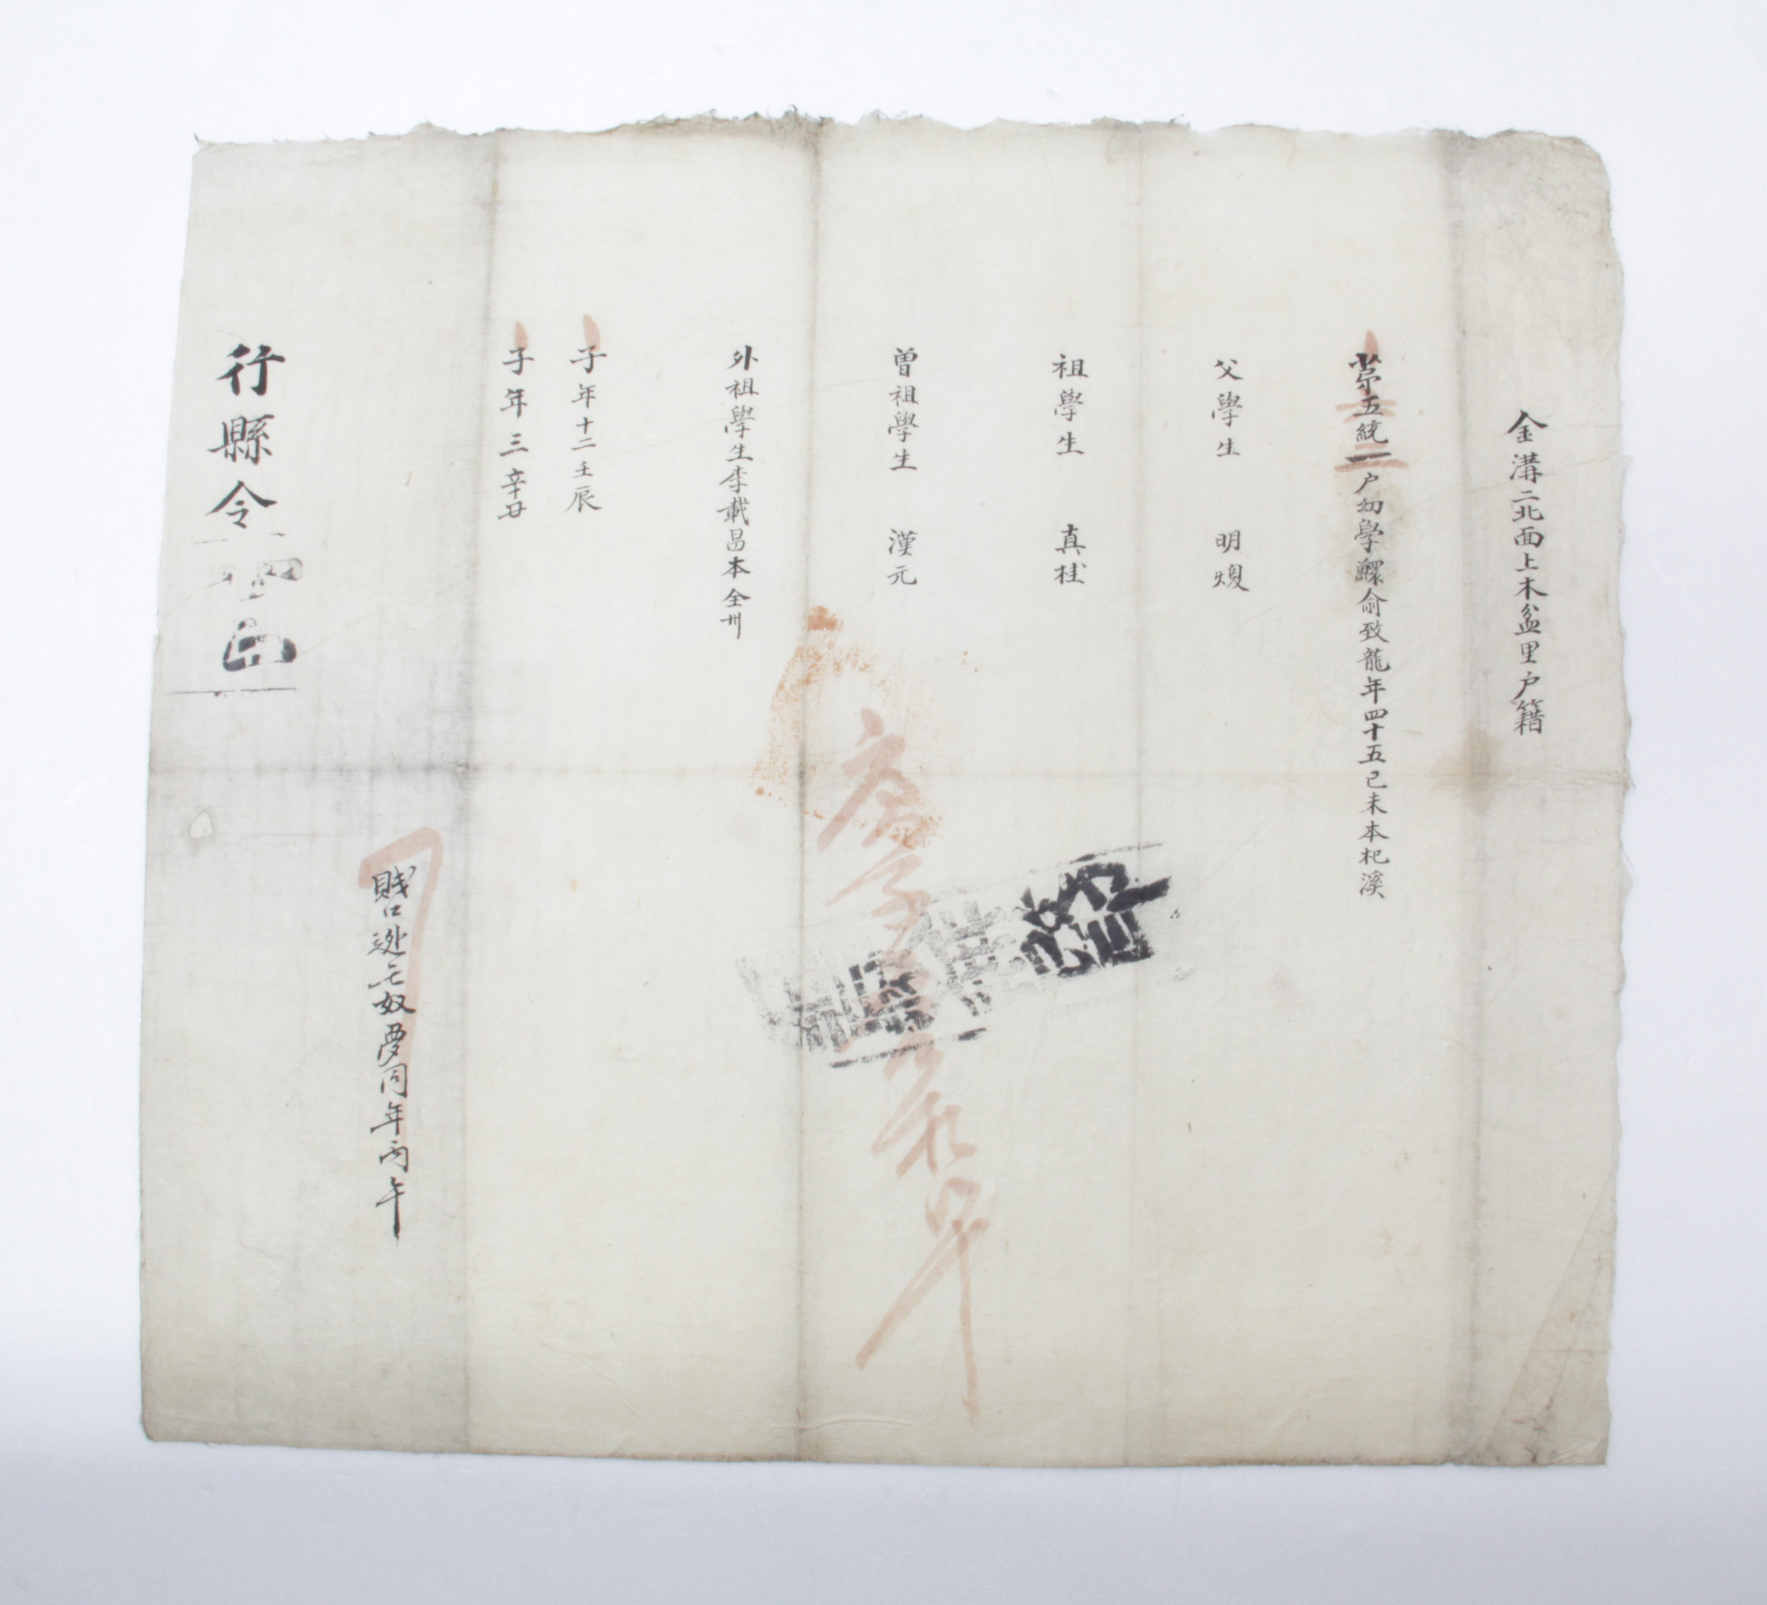 金溝二北面上木盆里户籍
第五統一户幼學鰥俞致龍年四十五己未本杞溪
父學生 明煥
祖學生 真桂
曽祖學生 漢元
外祖學生李載昌本全州
子年十二壬辰
子年三辛丑
賤口逃亡奴夢同年丙午
行縣令
庚子